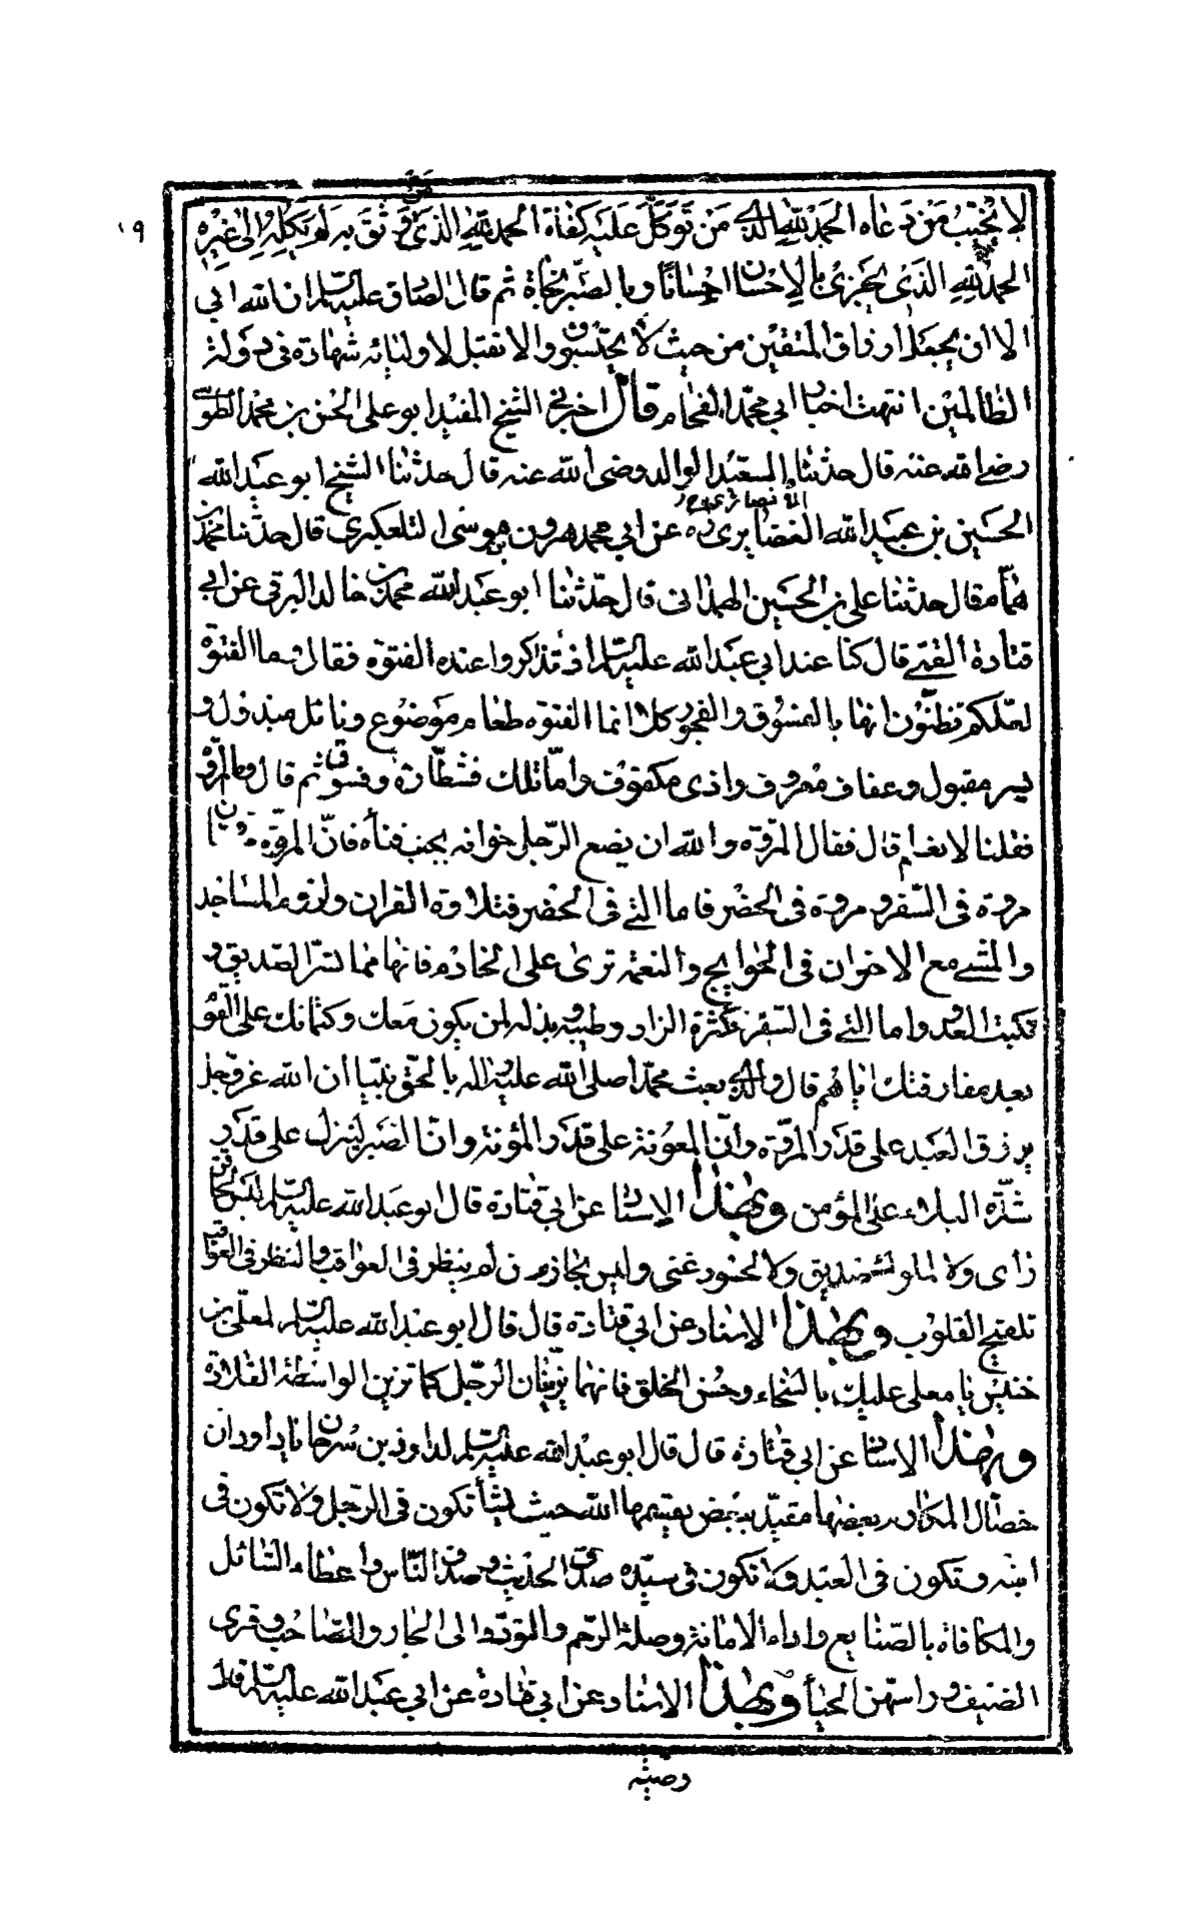 ١٩
لا يخيب من دعاه الحمد لله الذى من توكل عليه كفاه الحمد لله الذى من وثق به لم يكله الى غيره
الحمد لله الذى يجزى بالاحسان احسانا وبالصبر نجاة ثم قال الصادق عليه السلم ان الله ابى
الا ان يجعل ارزاق المتقين من حيث لا يحتسبون والا نقبل لاوليائه شهادة فى دولة
الظالمين انتهت اخبار ابى محمد الفحام قال اخبرنى الشيخ المفيد ابو على الحسن بن محمد الطوسى
رضى الله عنه قال حدثنا السعيد الوالد رضى الله عنه قال حدثنا الشيخ ابو عبد الله
الحسين بن عبيد الله الغضايرى ره عن ابى محمد هرون بن موسى التلعكبرى قال حدثنا محمد بن
همام قال حدثنا على بن الحسين الهمدانى قال حدثنا ابو عبد الله محمد بن خالد البرقى عن ابى
قتادة القمى قال كنا عند ابى عبد الله عليه السلم اذ تذاكروا عنده الفتوة فقال وما الفتوة
لعلكم تظنون انها بالفسوق والفجور كلا انما الفتوة طعام موضوع ونائل مبذول و
يسر مقبول وعفاف معروف واذى مكفوف واما تلك فشطارة وفسوق ثم قال وما المروة
فقلنا لا نعلم قال فقال المروة والله ان يضع الرجل خوانه بجنب فناه فان المروة مروتان
مروة فى السفر ومروة فى الحضر فاما التى فى الحضر فتلاوة القران ولزوم المساجد
والمشى مع الاخوان فى الحوايج والنعمة ترى على الخادم فانها مما تسر الصديق و
تكبت العدو واما التى فى السفر فكثرة الزاد وطيبه وبذله لمن يكون معك وكتمانك على القوم
بعد مفارقتك اياهم قال والذى بعث محمدا صلى الله عليه واله بالحق نبيا ان الله عز وجل
يرزق العبد على قدر المروة وان المعونة على قدر المؤنة وان الصبر لينزل على قدر
شدة البلاء على المؤمن وبهذا الاسناد عن ابى قتادة قال ابو عبد الله عليه السلم ليس لحاقن
رأى ولا لملول صديق ولا لحسود غنى وليس بحازم من لم ينظر فى العواقب والنظر فى العواقب
تلقيح القلوب وبهذا الاسناد عن ابى قتادة قال قال ابو عبد الله عليه السلم لمعلى بن
خنيس يا معلى عليك بالسخاء وحسن الخلق فانهما يزينان الرجل كما تزين الواسطة القلادة
وبهذا الاسناد عن ابى قتادة قال قال ابو عبد الله عليه السلم لداود بن سرحان يا داود ان
خصال المكارم بعضها مقيد ببعض يقسمها الله حيث يشأ تكون فى الرجل ولا تكون فى
ابنه وتكون فى العبد ولا تكون فى سيده صدق الحديث وصدق الناس واعطاء السائل
والمكافاة بالصنايع واداء الامانة وصلة الرحم والتودد الى الجار والصاحب وقرى
الضيف وراسهن الحيأ وبهذا الاسناد عن ابى قتادة عن ابى عبد الله عليه السلم قال
وصية